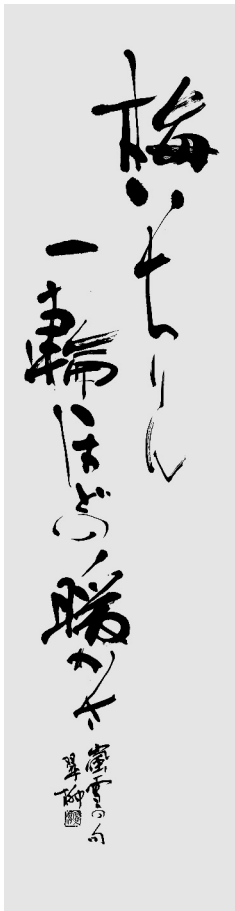 梅いちりん
一輪ほどの暖かさ
嵐雪の句
翠柳